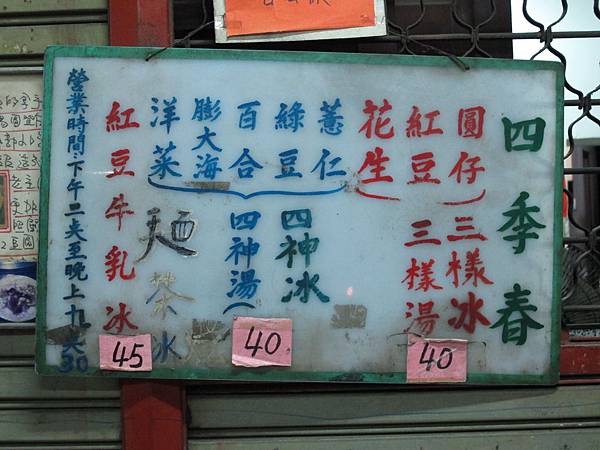 四季春
圓仔
紅豆
花生
三樣冰
三樣湯
40
薏仁
綠豆
百合
膨大海
洋菜
四神冰
四神湯
40
麵茶冰
紅豆牛乳冰
45
營業時間·下午二點至晚上九點30